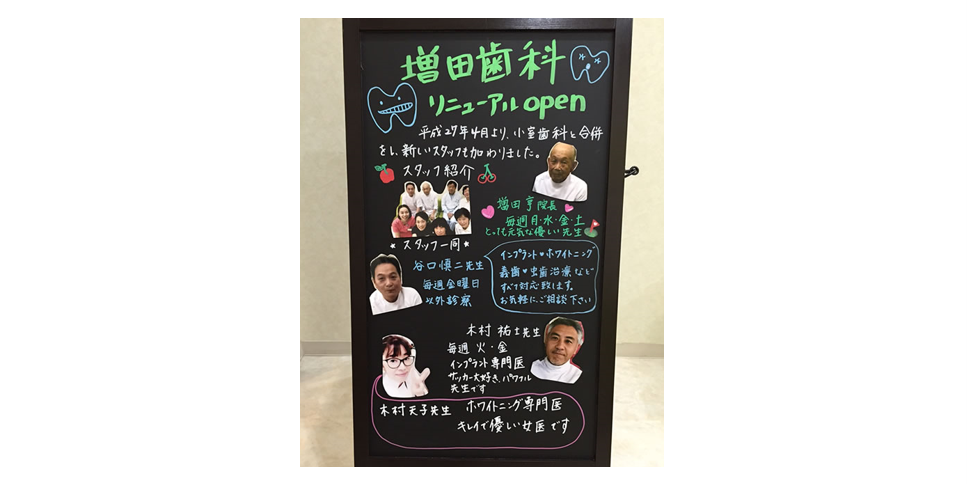 増田歯科
リニューアル open
平成27年4月より、小室歯科と合併
をし、新しいスタッフも加わりました。
スタッフ紹介
増田 亨 院長
毎週月・水・金・土
とっても元気な優しい先生
スタッフ一同
谷口慎二先生
毎週金曜日
以外診察
インプラント♥ホワイトニング
義歯♥虫歯治療など
すべて対応致します。
お気軽にご相談下さい
木村 祐士先生
毎週 火・金
インプラント専門医
サッカー大好き、パワフル
先生です
木村天子先生 ホワイトニング専門医
キレイで優しい女医です